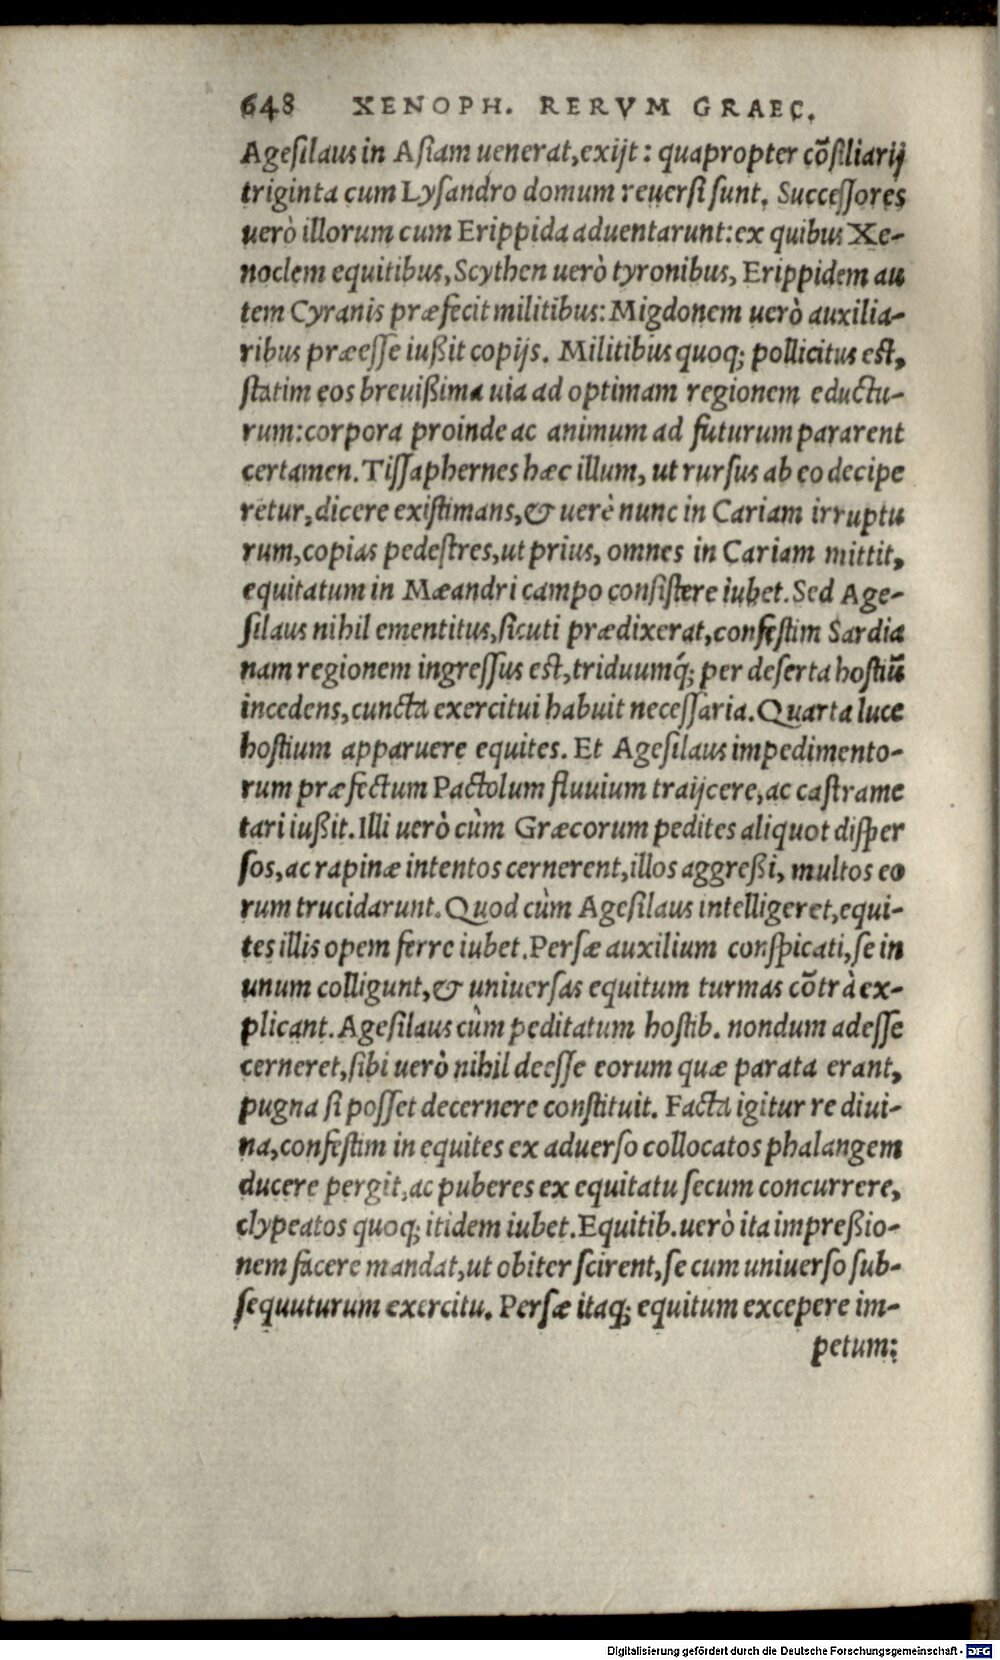 648 XENOPH. RERVM GRAEC.
Agesilaus in Asiam uenerat, exijt: quapropter cõsiliarij
triginta cum Lysandro domum reuersi sunt. Successores
uerò illorum cum Erippida aduentarunt: ex quibus Xe-
noclem equitibus, Scythen uerò tyronibus, Erippidem au
tem Cyranis præfecit militibus: Migdonem uerò auxilia-
ribus præesse iußit copijs. Militibus quoq; pollicitus est,
statim eos breuißima uia ad optimam regionem eductu-
rum: corpora proinde ac animum ad futurum pararent
certamen. Tissaphernes hæc illum, ut rursus ab eo decipe
retur, dicere existimans, & uerè nunc in Cariam irruptu
rum, copias pedestres, ut prius, omnes in Cariam mittit,
equitatum in Mæandri campo consistere iubet. Sed Age-
silaus nihil ementitus, sicuti prædixerat, confestim Sardia
nam regionem ingressus est, triduumq́; per deserta hostiũ
incedens, cuncta exercitui habuit necessaria. Quarta luce
hostium apparuere equites. Et Agesilaus impedimento-
rum præfectum Pactolum fluuium traijcere, ac castrame
tari iußit. Illi uerò cùm Græcorum pedites aliquot disper
sos, ac rapinæ intentos cernerent, illos aggreßi, multos eo
rum trucidarunt. Quod cùm Agesilaus intelligeret, equi-
tes illis opem ferre iubet. Persæ auxilium conspicati, se in
unum colligunt, & uniuersas equitum turmas cõtrà ex-
plicant. Agesilaus cùm peditatum hostib. nondum adesse
cerneret, sibi uerò nihil deesse eorum quæ parata erant,
pugna si posset decernere constituit. Facta igitur re diui-
na, confestim in equites ex aduerso collocatos phalangem
ducere pergit, ac puberes ex equitatu secum concurrere,
clypeatos quoq; itidem iubet. Equitib. uerò ita impreßio-
nem facere mandat, ut obiter scirent, se cum uniuerso sub-
sequuturum exercitu. Persæ itaq; equitum excepere im-
petum:
Digitalisierung gefördert durch die Deutsche Forschungsgemeinschaft - DFG